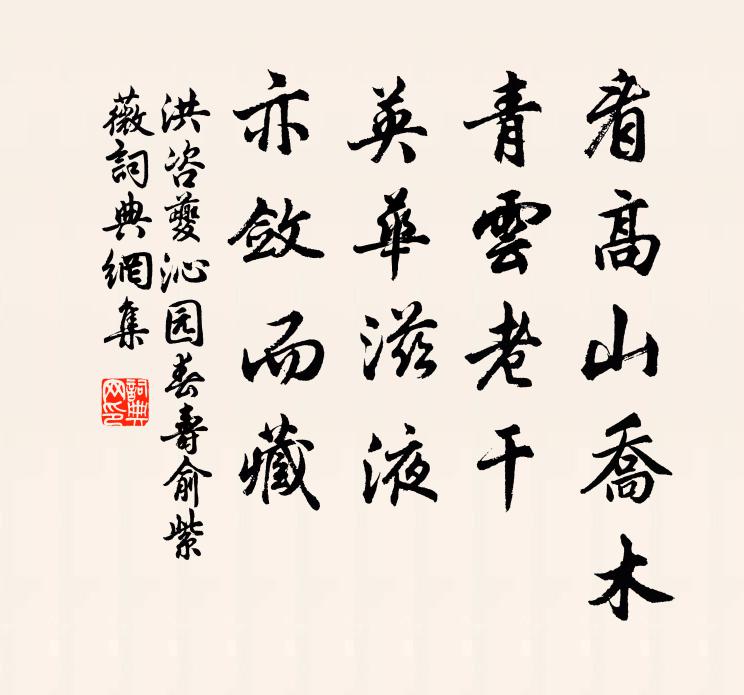 看高山喬木
青雲老干
英華滋液
亦斂而藏
洪咨夔沁园春壽俞紫
薇詞典網集
詞典
网印